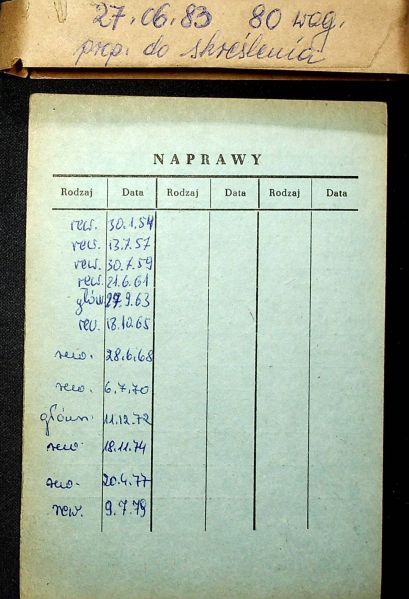 27.06.83 80 wag.
prop. do skreślenia
NAPRAWY
Rodzaj Data Rodzaj Data Rodzaj Data
rew. 30.1.54
rew. 13.7.57
rew. 30.7.59
rew. 21.6.61
główn 27.9.63
rew. 18.10.65
rew. 28.6.68
rew. 6.7.70
główn. 11.12.72
rew 18.11.74
rew. 20.4.77
rew. 9.7.79